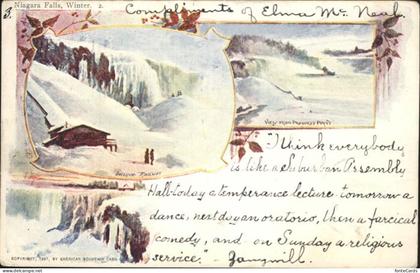 3
Niagara Falls, Winter. 2.
Compliments of Elma Mc Neal
View from Prospect Point
Incline Railway
"I think everybody
is like a Suburban Assembly
Hall-today a temperance lecture tomorrow a
dance, next day an oratorio, then a farcical
comedy, and on Sunday a religious
service." - Zangwill.
COPYRIGHT, 1897, BY AMERICAN SOUVENIR CARD
fonteCards